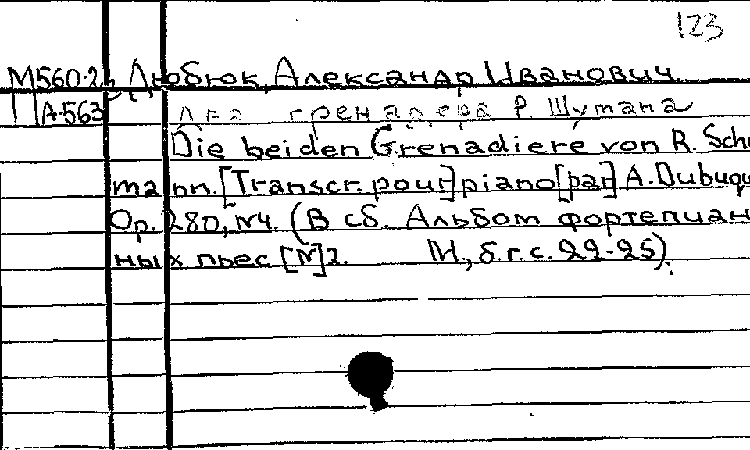 123
М560.2, Дюбюк, Александр Иванович
А563 Два гренадера Р. Шумана
Die beiden Grenadiere von R. Schu
mann. [Transcr. pour] piano [par] A. Dubuqu
Op. 280, N4. (В сб. Альбом фортепиан
ных пьес [N] 2. М., б.г. с. 22-25).